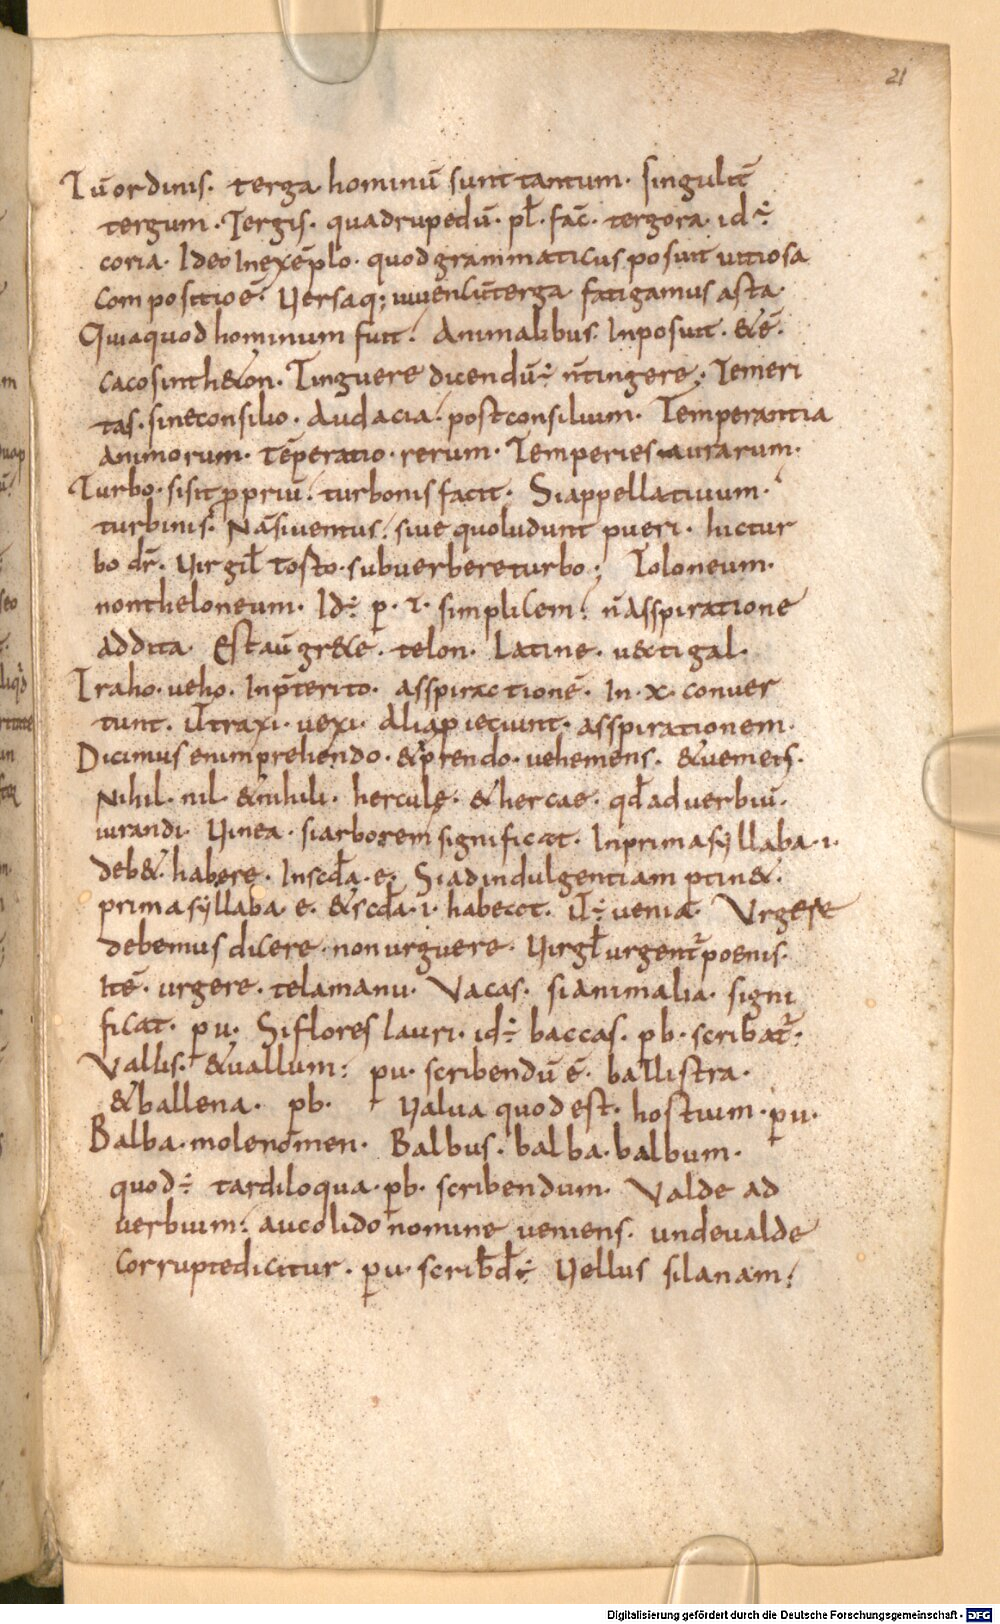 21
Tū ordinis. terga hominū sunt tantum. singulit̄
tergum. Tergis. quadrupedū. pl̄. fac̄. tergora. id÷
coria. Ideo Inexēplo. quod grammaticus posuit uitiosa
Compositioē. Versaq; iuuencūterga fatigamus asta.
Quia quod hominum fuit. Animalibus. Inposuit. & ē.
cacosinth&on. Tinguere dicendū÷ n̄ tingere; Temeri
tas. sine consilio. Audacia. post consilium. Temperantia
animorum. tēperatio. rerum. Temperies aurarum.
Turbo. si sit ppriū. turbonis facit. Si appellatiuum.
turbinis. Nā si uentus. siue quo ludunt pueri. hic tur
bo dr̄. Virgil̄ tosto. sub uerbere turbo; Toloneum.
non theloneum. Id÷ p. t. simplicem. n̄ asspiratione
addita. Est aū grece. telon. Latine. uectigal.
Traho. ueho. In p̄terito. asspirationē. In. x. conuer
tunt. ut̄ traxi. uexi. Aliap iciunt. asspirationem.
Dicimus enim prehendo. & prendo. uehemens. & uemens.
Nihil. nil. & nihili. hercule. & hercae. qd̄ aduerbiū.
iurandi. Vinea. si arborem significat. In prima syllaba. i.
deb&. habere. In scd̄a. e. Si ad indulgentiam ptin&.
prima syllaba. e. & scd̄a. i. habeat. ut̄÷ uenia. Vrgere
debemus dicere. non urguere. Virgl̄ urgentr̄ poenis.
Itē. urgere. tela manu. Vacas. si animalia. signi
ficat. pu. Si flores lauri. id÷ baccas. pb. scribatr̄.
Vallis. & uallum. pu. scribendū ē. ballistra.
& ballena. pb. Valua quod est. hostium. pu.
Balba. mole nomen. Balbus. balba. balbum.
quod÷ tardiloqua. pb. scribendum. Valde ad
uerbium. aucolido nomine ueniens. unde ualde
corrupte dicitur. pu. scribd̄÷ Vellus si lanam.
Digitalisierung gefördert durch die Deutsche Forschungsgemeinschaft - DFG